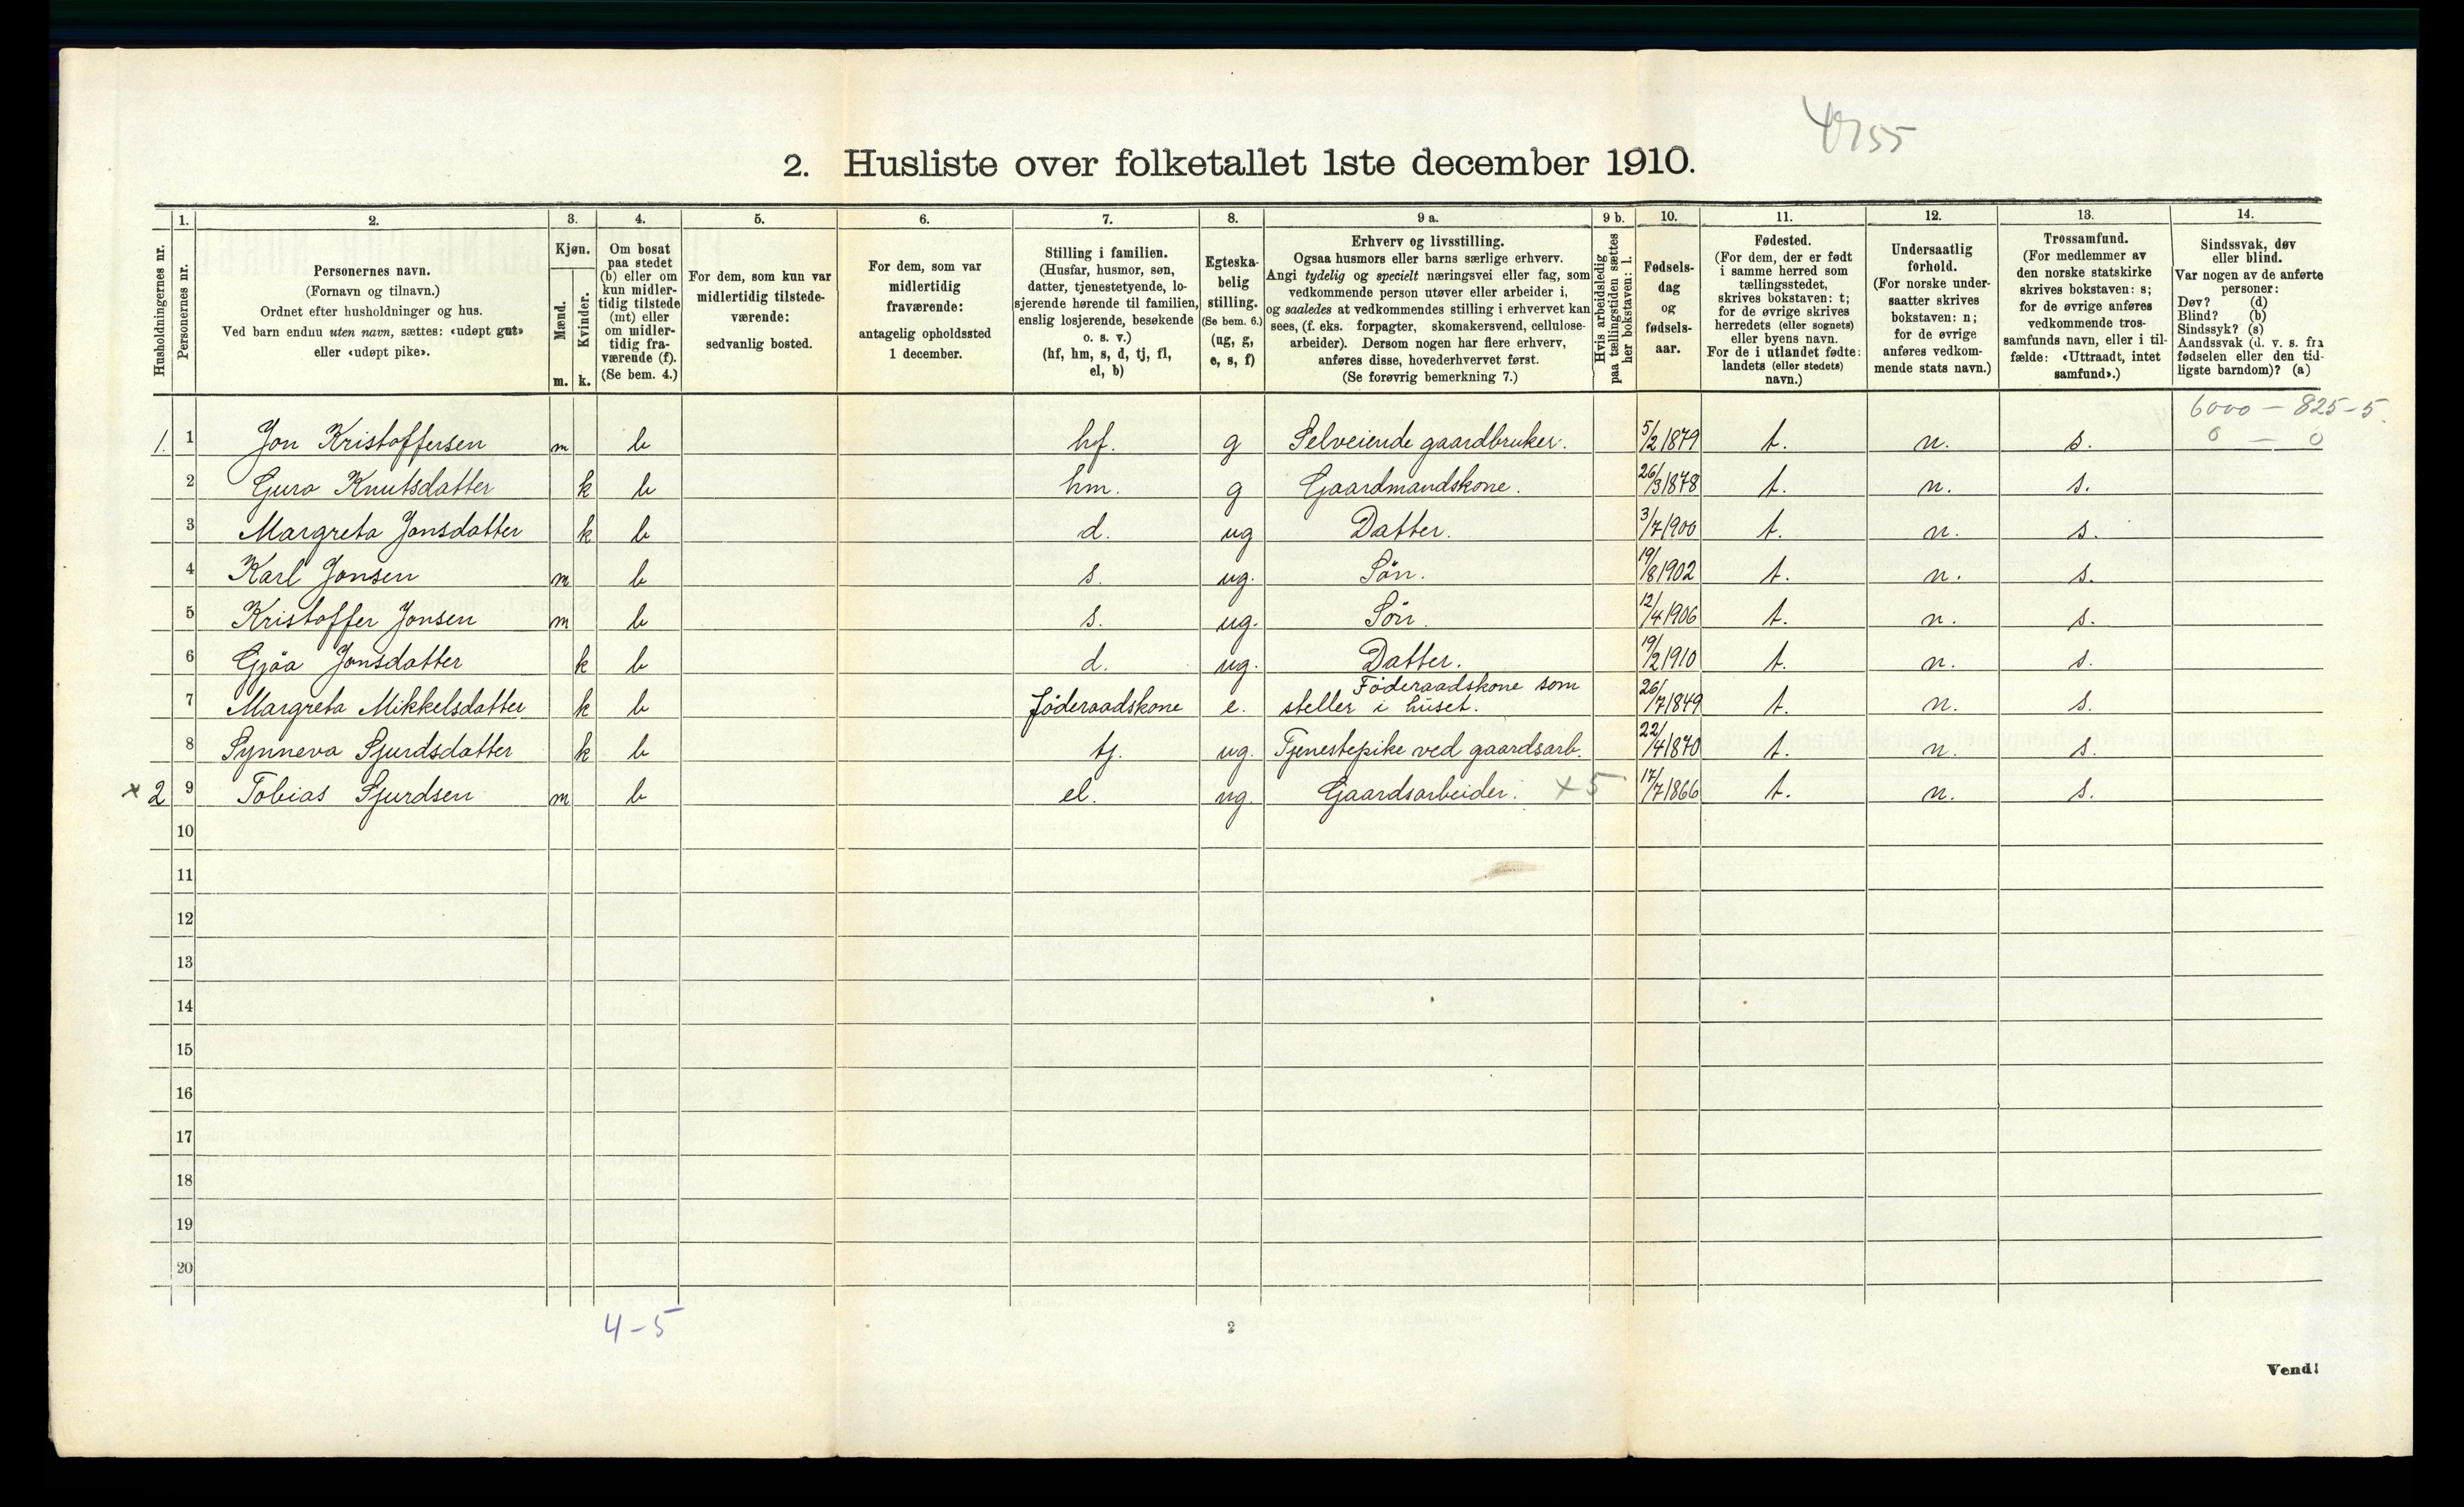 4755
2. Husliste over folketallet 1ste december 1910.
Husholdningernes nr.
1.
Personernes nr.
2.
Personernes navn.
(Fornavn og tilnavn.)
Ordnet efter husholdninger og hus.
Ved barn endnu uten navn, sættes: «udøpt gut»
eller «udøpt pike».
3.
Kjøn.
Mænd.
Kvinder.
m. k.
4.
Om bosat
paa stedet
(b) eller om
kun midler-
tidig tilstede
(mt) eller
om midler-
tidig fra-
værende (f).
(Se bem. 4.)
5.
For dem, som kun var
midlertidig tilstede-
værende:
sedvanlig bosted.
6.
For dem, som var
midlertidig
fraværende:
antagelig opholdssted
1 december.
7.
Stilling i familien.
(Husfar, husmor, søn,
datter, tjenestetyende, lo-
sjerende hørende til familien,
enslig losjerende, besøkende
o. s. v.)
(hf, hm, s, d, tj, fl,
el, b)
8.
Egteska-
belig
stilling.
(Se bem. 6.)
(ug, g,
e, s, f)
9 a.
Erhverv og livsstilling.
Ogsaa husmors eller barns særlige erhverv.
Angi tydelig og specielt næringsvei eller fag, som
vedkommende person utøver eller arbeider i,
og saaledes at vedkommendes stilling i erhvervet kan
sees, (f. eks. forpagter, skomakersvend, cellulose-
arbeider). Dersom nogen har flere erhverv,
anføres disse, hovederhvervet først.
(Se forøvrig bemerkning 7.)
9 b.
Hvis arbeidsledig
paa tællingstiden sættes
her bokstaven: l.
10.
Fødsels-
dag
og
fødsels-
aar.
11.
Fødested.
(For dem, der er født
i samme herred som
tællingsstedet,
skrives bokstaven: t;
for de øvrige skrives
herredets (eller sognets)
eller byens navn.
For de i utlandet fødte:
landets (eller stedets)
navn.)
12.
Undersaatlig
forhold.
(For norske under-
saatter skrives
bokstaven: n;
for de øvrige
anføres vedkom-
mende stats navn.)
13.
Trossamfund.
(For medlemmer av
den norske statskirke
skrives bokstaven: s;
for de øvrige anføres
vedkommende tros-
samfunds navn, eller i til-
fælde: «Uttraadt, intet
samfund».)
14.
Sindssvak, døv
eller blind.
Var nogen av de anførte
personer:
Døv? (d)
Blind? (b)
Sindssyk? (s)
Aandssvak (d. v. s. fra
fødselen eller den tid-
ligste barndom)? (a)
6000 — 825-5
0 — 0
1. 1 Jon Kristoffersen m b hf. g Selveiende gaardbruker. 5/2 1879 t. n. s.
2 Guro Knutsdatter k b hm. g Gaardmandskone. 26/3 1878 t. n. s.
3 Margreta Jonsdatter k b d. ug Datter. 3/7 1900 t. n. s.
4 Karl Jonsen m b s. ug. Sön. 19/8 1902 t. n. s.
5 Kristoffer Jonsen m b s. ug. Sön. 12/4 1906 t. n. s.
6 Gjöa Jonsdatter k b d. ug. Datter. 19/2 1910 t. n. s.
7 Margreta Mikkelsdatter k b föderaadskone e. Föderaadskone som steller i huset. 26/7 1849 t. n. s.
8 Synneva Sjurdsdatter k b tj. ug. Tjenestepike ved gaardsarb. 22/4 1870 t. n. s.
x 2 9 Tobias Sjurdsen m b el. ug. Gaardsarbeider. x 5 17/7 1866 t. n. s.
10
11
12
13
14
15
16
17
18
19
20
4-5
2
Vend!